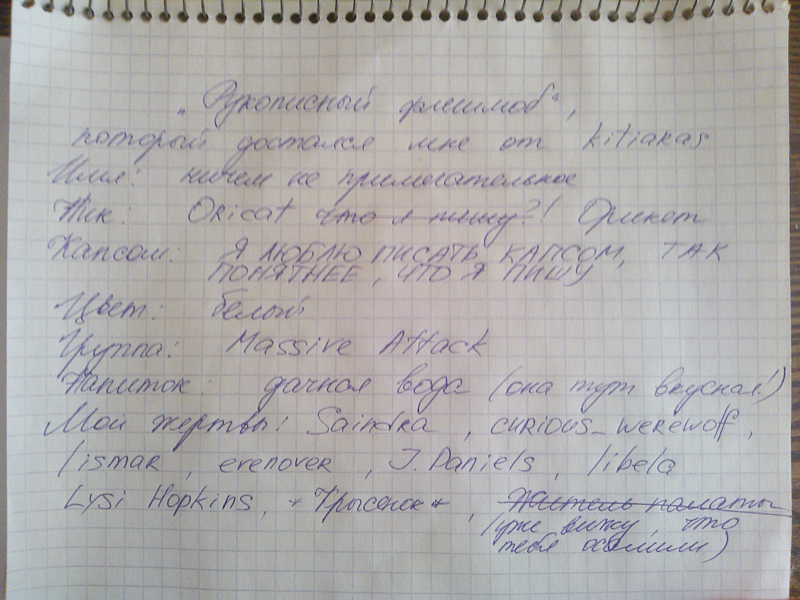 „Рукописный флешмоб“,
который достался мне от kitiakas
Имя: ничем не примечательное
Ник: Oricat что я пишу?! Орикет
Капсом: Я ЛЮБЛЮ ПИСАТЬ КАПСОМ, ТАК
ПОНЯТНЕЕ, ЧТО Я ПИШУ
Цвет: белый
Группа: Massive Attack
Напиток: дачная вода (она тут вкусная!)
Мои жертвы: Saindra, curious_werewolf,
lismar, erenover, J.Daniels, libela
Lysi Hopkins, *Трысёнок*, Житель палаты
(уже вижу, что
тебя осалили)